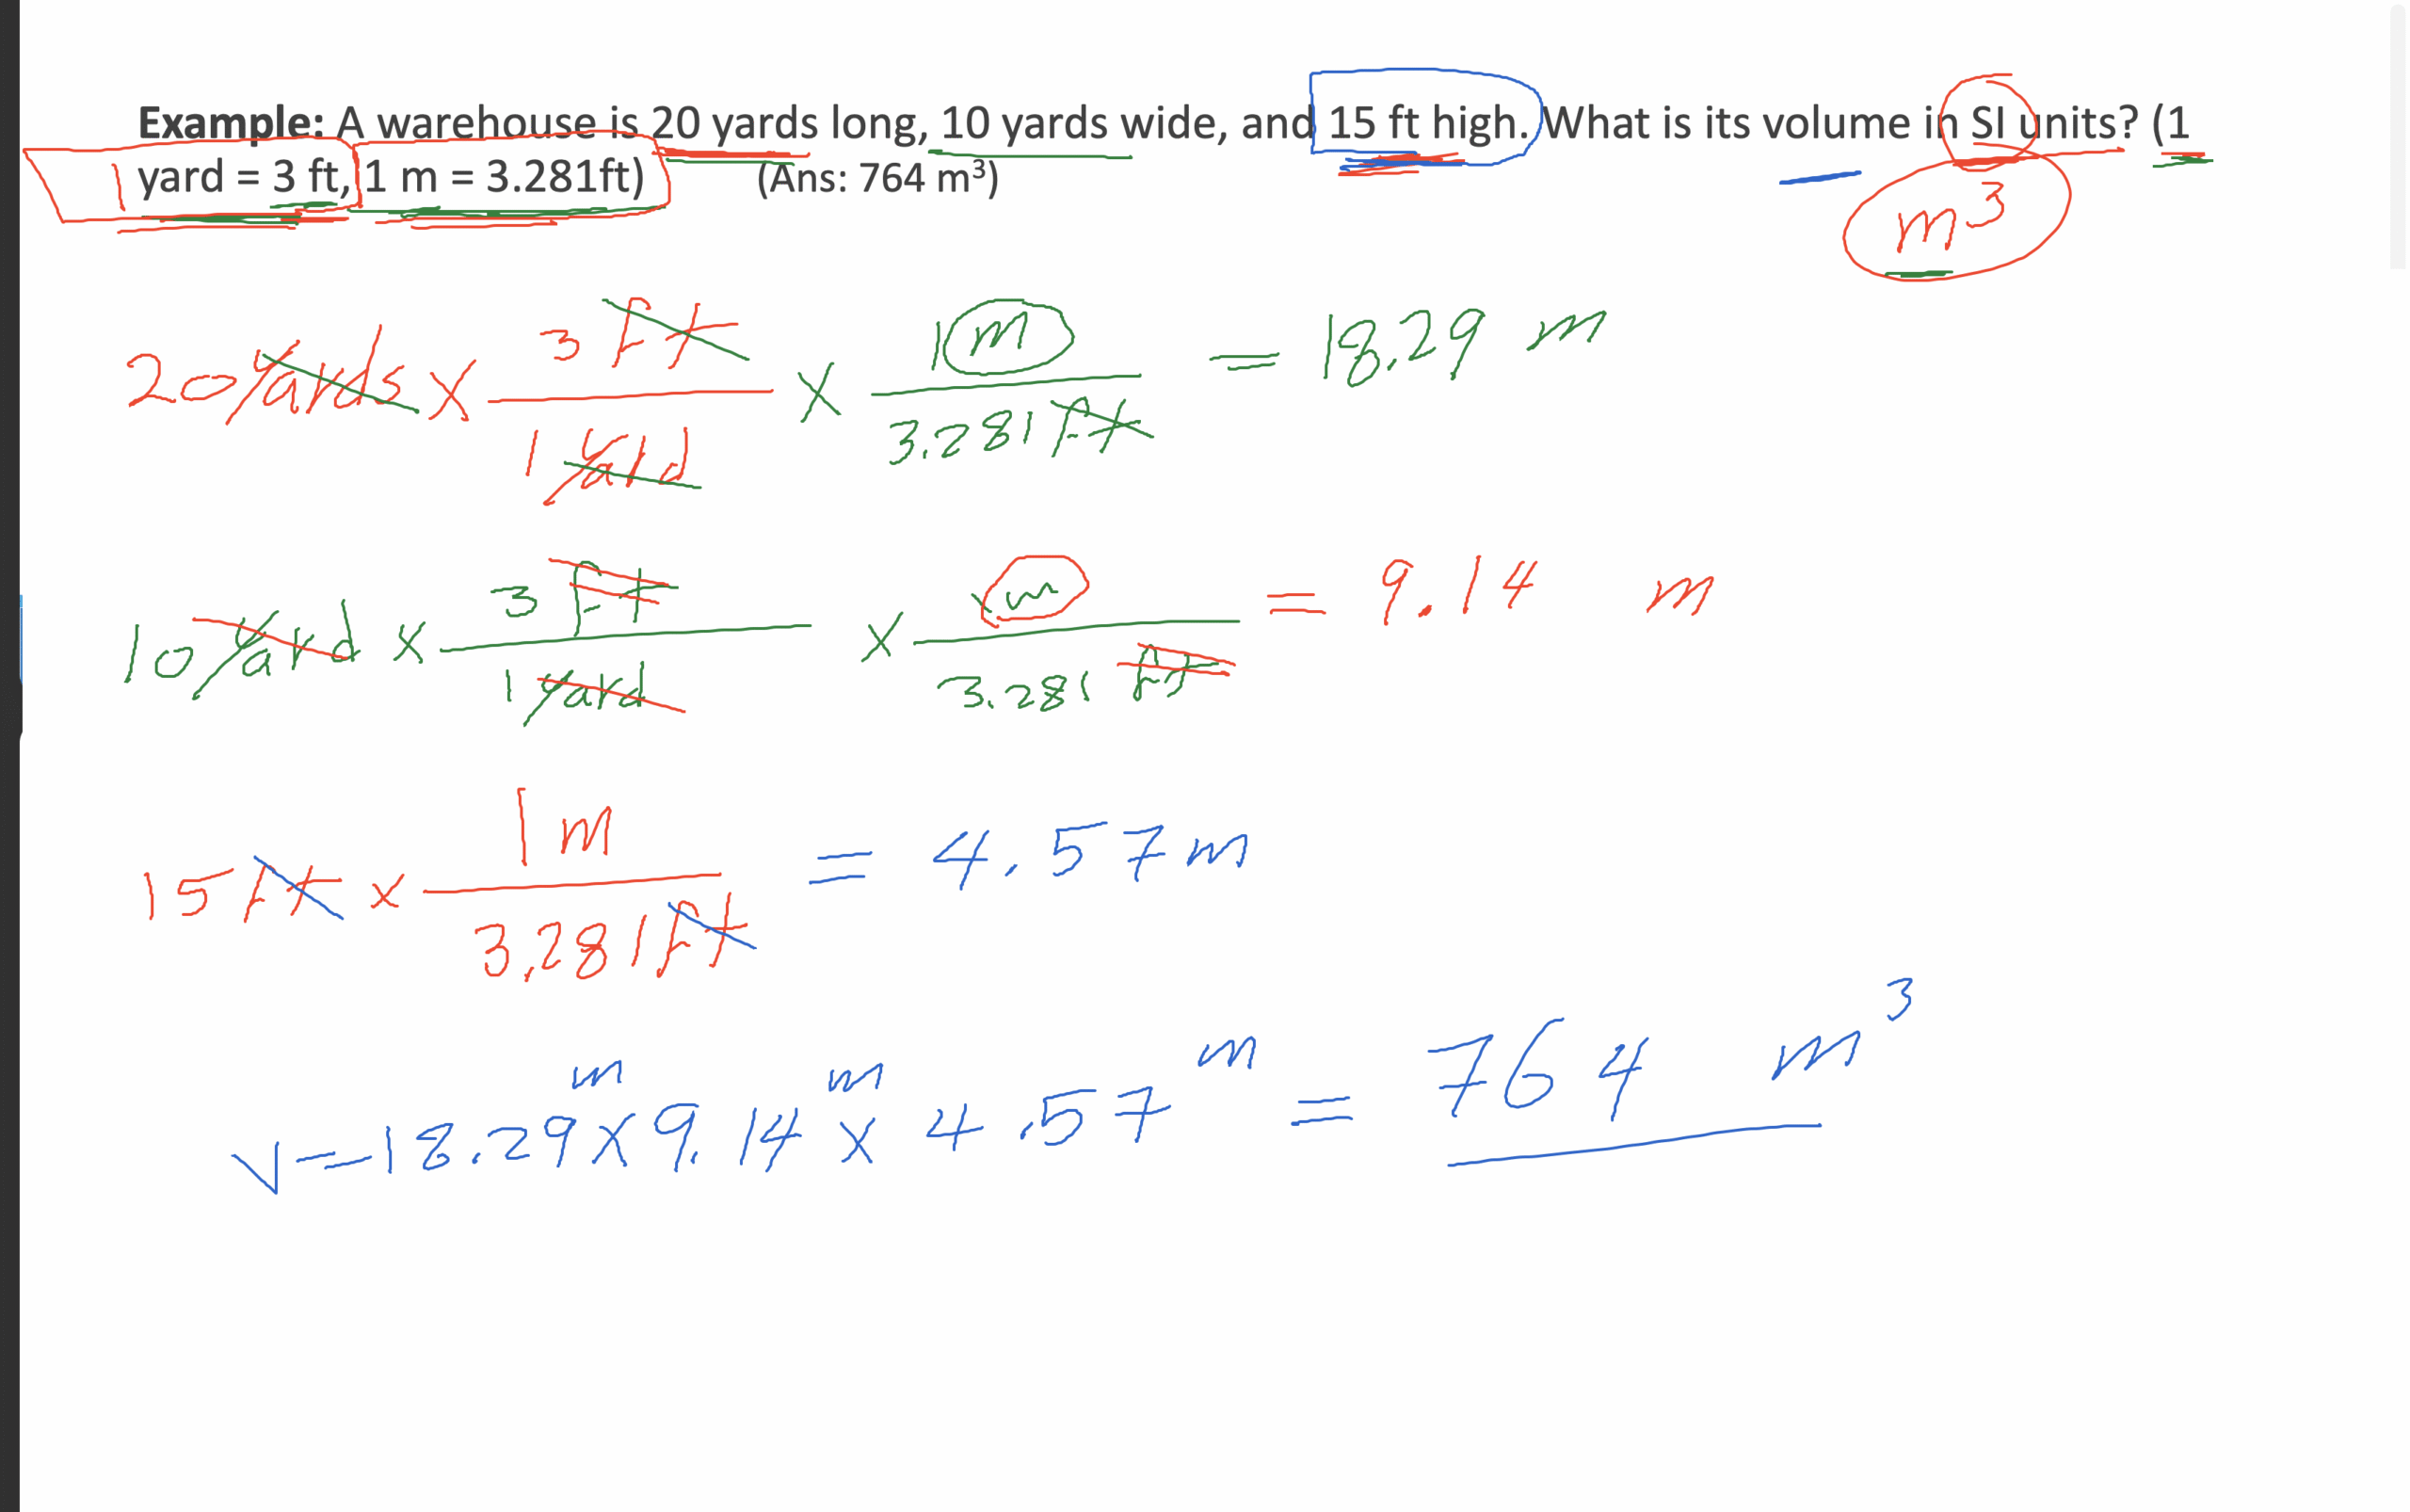 Example: A warehouse is 20 yards long, 10 yards wide, and 15 ft high. What is its volume in SI units? (1
yard = 3 ft, 1 m = 3.281ft) (Ans: 764 m³)
m³
20 yards x 3 ft / 1 yard x 1 m / 3.281 ft = 18.29 m
10 yard x 3 ft / 1 yard x 1 m / 3.281 ft = 9.14 m
15 ft x 1 m / 3.281 ft = 4.57 m
V = 18.29 m x 9.14 m x 4.57 m = 764 m³